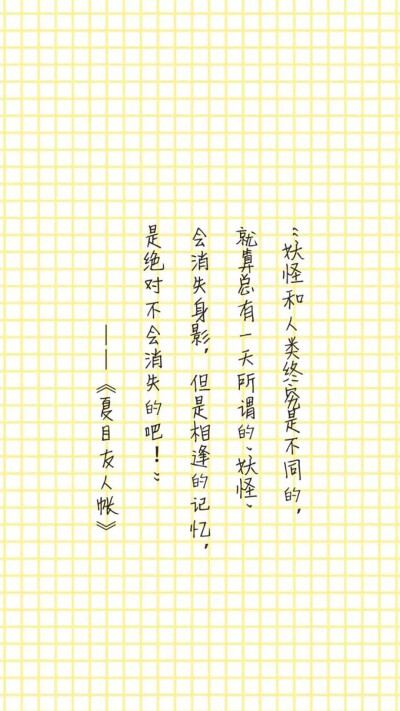 “妖怪和人类终究是不同的，
就算总有一天所谓的“妖怪”
会消失身影，但是相逢的记忆，
是绝对不会消失的吧！”
——《夏目友人帐》